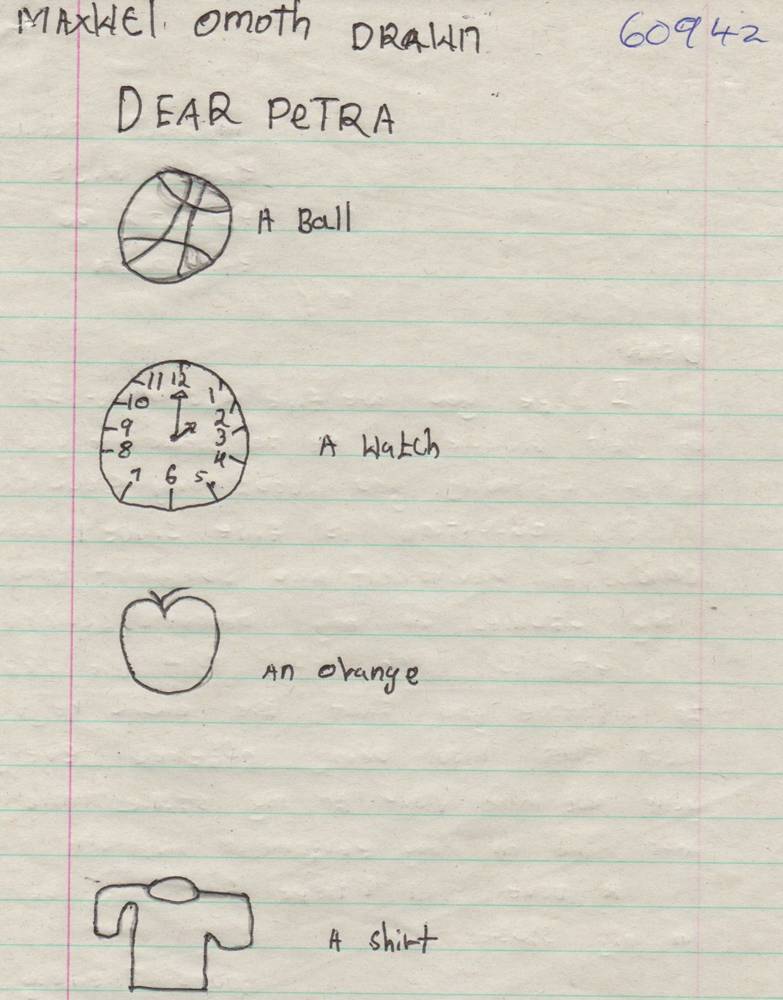 MAXWEl omoth DRAWN 60942
DEAR PeTRA
A Ball
11 12 1
10 2
9 3
8 4
7 6 5
A Watch
An orange
A shirt